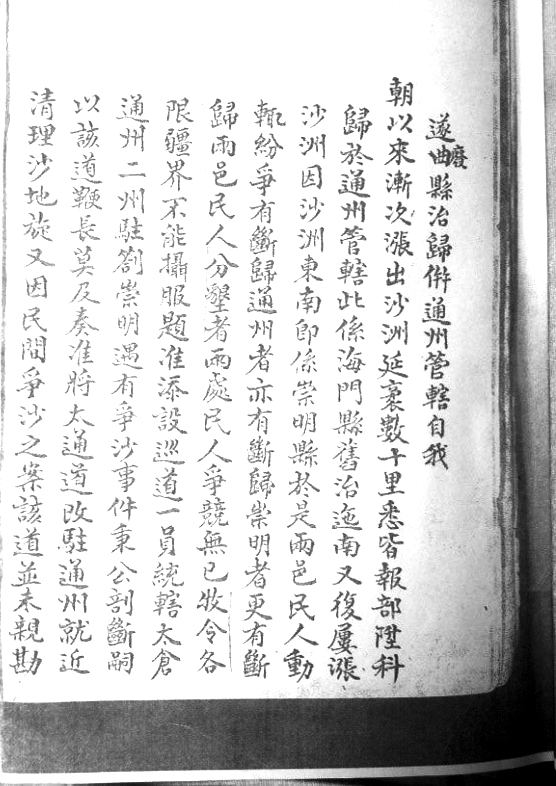 遂廢曲縣治歸併通州管轄自我
朝以來漸次漲出沙洲延袤數十里悉皆報部陞科
歸於通州管轄此係海門縣舊治迤南又復屢漲
沙洲因沙洲東南即係崇明縣於是兩邑民人動
輒紛爭有斷歸通州者亦有斷歸崇明者更有斷
歸兩邑民人分墾者兩處民人爭競無已牧令各
限疆界不能攝服題准添設巡道一員統轄太倉
通州二州駐劄崇明遇有爭沙事件秉公剖斷嗣
以該道鞭長莫及奏准將太通道改駐通州就近
清理沙地旋又因民間爭沙之案該道並未親勘